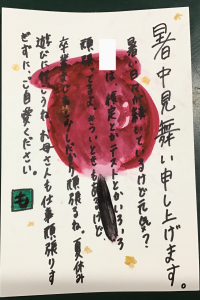 暑中見舞い申し上げます。
暑い日が続いてるけど元気？
は検定とかテストとかいろいろ
頑張ってるよ。きついときもあるけど
卒業まで
頑張るね。夏休み
遊びに行こうね。お母さんも仕事頑張りす
ぎずに、ご自愛ください。
も